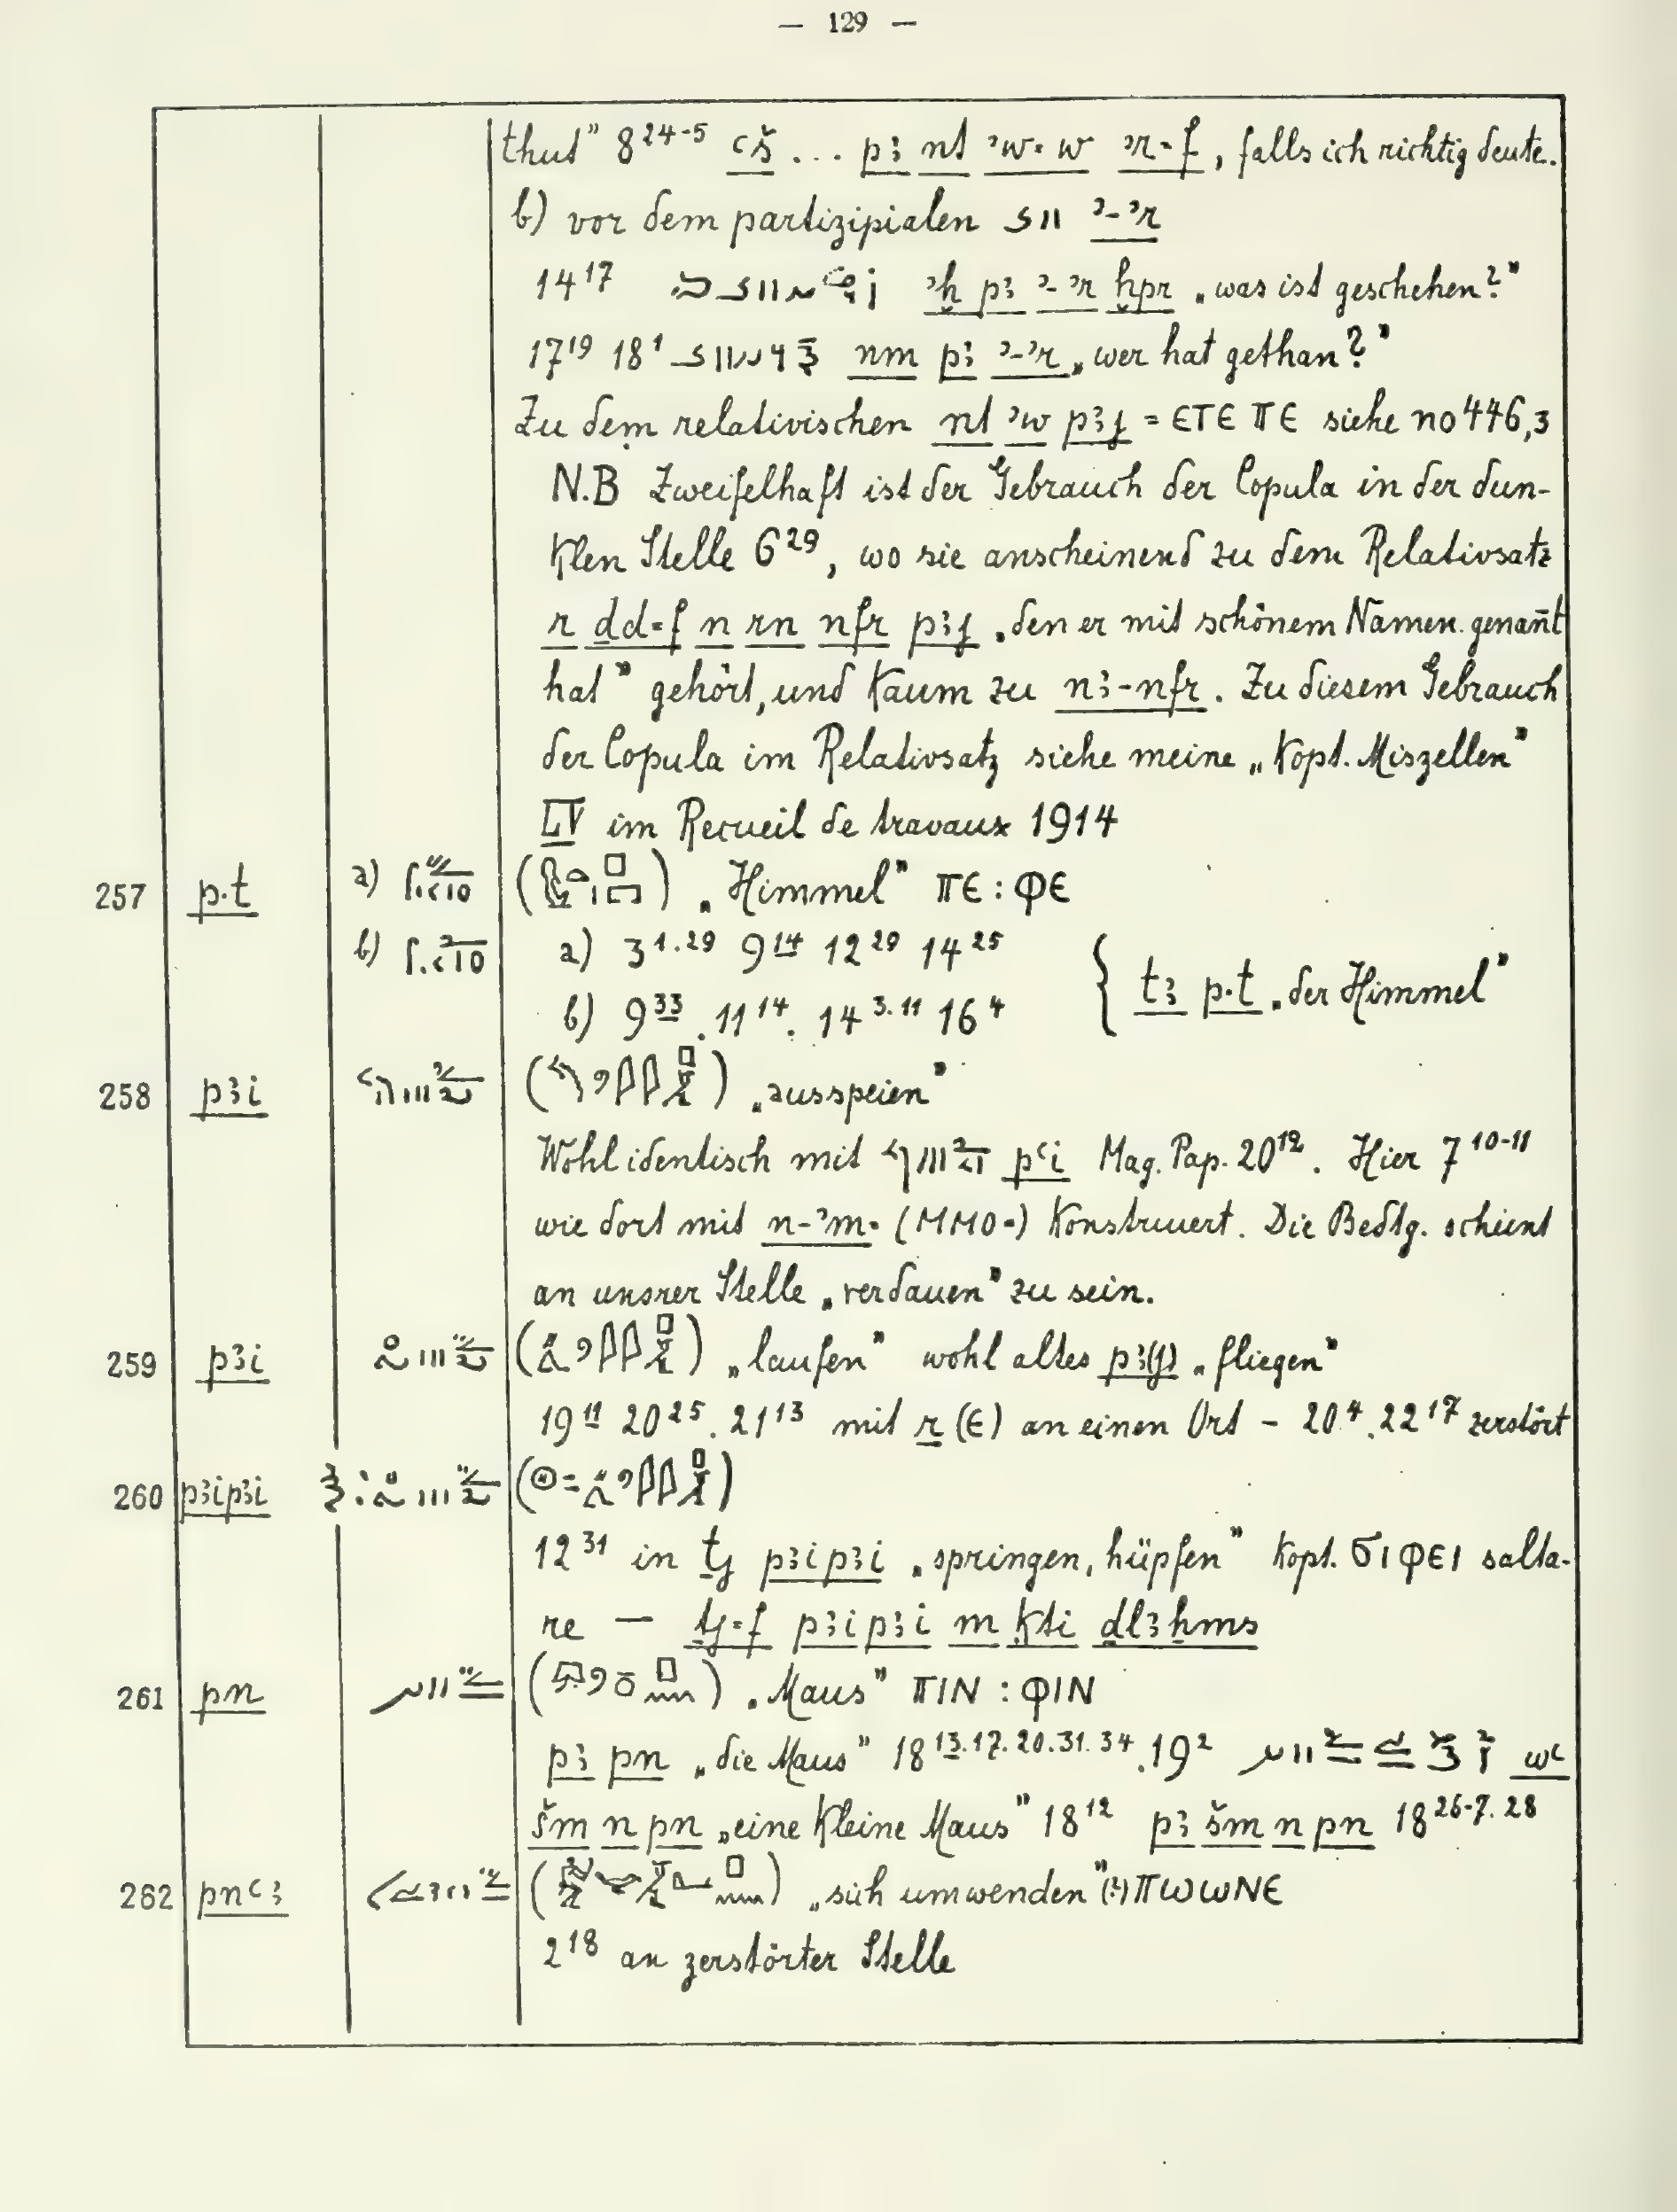 — 129 —
thut" 8²⁴⁻⁵ ꜥš ... pꜣ nt ꜣw⸗w ꜣr⸗f, falls ich richtig deute.
b) vor dem partizipialen ꜣ-ꜣr
14¹⁷ ꜣḫ pꜣ ꜣ-ꜣr ḫpr „was ist geschehen?"
17¹⁹ 18¹ nm pꜣ ꜣ-ꜣr „wer hat gethan?"
Zu dem relativischen nt ꜣw pꜣj = ЄTЄ ΠЄ siehe no 446,3
N.B Zweifelhaft ist der Gebrauch der Copula in der dun-
klen Stelle 6²⁹, wo sie anscheinend zu dem Relativsatz
r ḏd⸗f n rn nfr pꜣj „den er mit schönem Namen genan̄t
hat" gehört, und kaum zu nꜣ-nfr. Zu diesem Gebrauch
der Copula im Relativsatz siehe meine „Kopt. Miszellen"
LV im Recueil de travaux 1914
257 p.t a) ( ) „Himmel" ⲠⲈ : ⲪⲈ
b) a) 3¹·²⁹ 9¹⁴ 12²⁹ 14²⁵
b) 9³³. 11¹⁴. 14³·¹¹ 16⁴ { tꜣ p.t „der Himmel"
258 pꜣi ( ) „ausspeien"
Wohl identisch mit pꜥi Mag. Pap. 20¹². Hier 7¹⁰⁻¹¹
wie dort mit n-ꜣm⸗ (ⲘⲘⲞ⸗) konstruiert. Die Bedtg. scheint
an unsrer Stelle „verdauen" zu sein.
259 pꜣi ( ) „laufen" wohl altes pꜣ(j) „fliegen"
19¹¹ 20²⁵. 21¹³ mit r (Ⲉ) an einen Ort – 20⁴. 22¹⁷ zerstört
260 pꜣipꜣi ( )
12³¹ in ṯj pꜣipꜣi „springen, hüpfen" kopt. ϬⲒⲪⲈⲒ salta-
re — ṯj⸗f pꜣipꜣi m ḳti ḏlꜣhms
261 pn ( ) „Maus" ⲠⲒⲚ : ⲪⲒⲚ
pꜣ pn „die Maus" 18¹³·¹⁷·²⁰·³¹·³⁴. 19² wꜥ
šm n pn „eine kleine Maus" 18¹² pꜣ šm n pn 18²⁶⁻⁷·²⁸
262 pnꜥꜣ ( ) „sich umwenden" (?) ⲠⲰⲰⲚⲈ
2¹⁸ an zerstörter Stelle